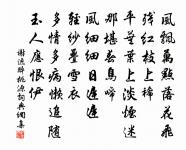 風飄萬點落花飛
殘紅枝上稀
平蕪葉上淡煙迷
那堪春鳥啼
風細細日遲遲
輕紗疊雪衣
多情多病懶追隨
玉人應恨伊
謝逸醉桃源詞典網集